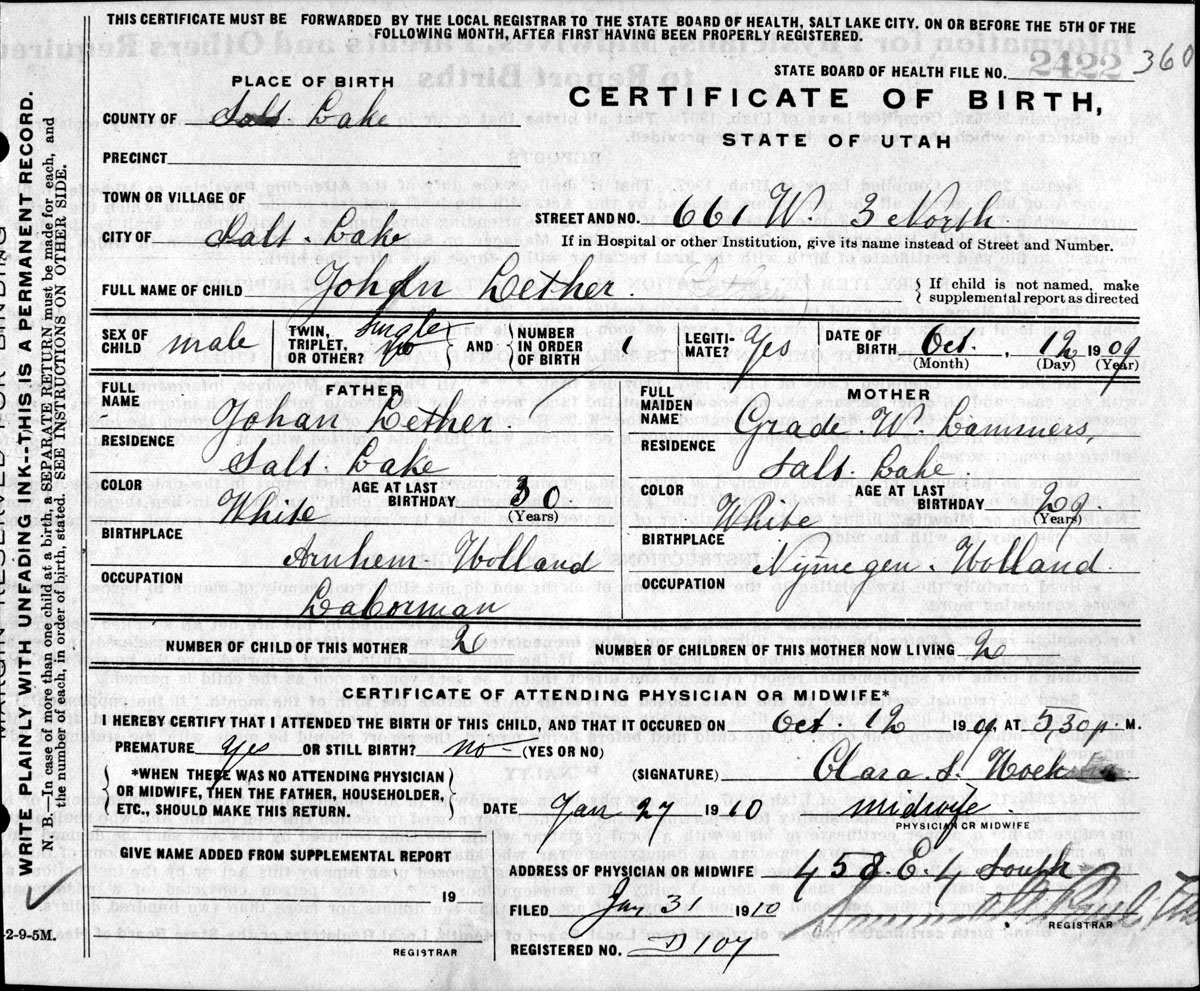 THIS CERTIFICATE MUST BE FORWARDED BY THE LOCAL REGISTRAR TO THE STATE BOARD OF HEALTH, SALT LAKE CITY. ON OR BEFORE THE 5TH OF THE
FOLLOWING MONTH, AFTER FIRST HAVING BEEN PROPERLY REGISTERED.
STATE BOARD OF HEALTH FILE NO. 2422 360
PLACE OF BIRTH
CERTIFICATE OF BIRTH,
STATE OF UTAH
COUNTY OF Salt Lake
PRECINCT
TOWN OR VILLAGE OF
STREET AND NO. 661 W. 3 North
CITY OF Salt. Lake
If in Hospital or other Institution, give its name instead of Street and Number.
FULL NAME OF CHILD Johan Lether.
If child is not named, make
supplemental report as directed
SEX OF CHILD male
TWIN, TRIPLET, OR OTHER? Single no
AND NUMBER IN ORDER OF BIRTH 1
LEGITI-MATE? Yes
DATE OF BIRTH Oct. 12 1909
(Month) (Day) (Year)
FATHER
FULL NAME Johan Lether
RESIDENCE
Salt. Lake
COLOR White
AGE AT LAST BIRTHDAY 30
(Years)
BIRTHPLACE
Arnhem Holland
OCCUPATION
Laborman
MOTHER
FULL MAIDEN NAME Grade. W. Lammers,
RESIDENCE
Salt. Lake
COLOR White
AGE AT LAST BIRTHDAY 29.
(Years)
BIRTHPLACE
Nijmegen. Holland.
OCCUPATION
NUMBER OF CHILD OF THIS MOTHER 2
NUMBER OF CHILDREN OF THIS MOTHER NOW LIVING 2
CERTIFICATE OF ATTENDING PHYSICIAN OR MIDWIFE*
I HEREBY CERTIFY THAT I ATTENDED THE BIRTH OF THIS CHILD, AND THAT IT OCCURED ON Oct 12 1909, AT 5,30 p. M.
PREMATURE Yes OR STILL BIRTH? no (YES OR NO)
*WHEN THERE WAS NO ATTENDING PHYSICIAN
OR MIDWIFE, THEN THE FATHER, HOUSEHOLDER,
ETC., SHOULD MAKE THIS RETURN.
(SIGNATURE) Clara. S.
DATE Jan 27 1910 midwife
PHYSICIAN OR MIDWIFE
GIVE NAME ADDED FROM SUPPLEMENTAL REPORT
19
REGISTRAR
ADDRESS OF PHYSICIAN OR MIDWIFE 458. E. 4 South
FILED Jan 31 1910
REGISTRAR
REGISTERED NO. D 107
WRITE PLAINLY WITH UNFADING INK--THIS IS A PERMANENT RECORD.
N. B.—In case of more than one child at a birth, a SEPARATE RETURN must be made for each, and
the number of each, in order of birth, stated. SEE INSTRUCTIONS ON OTHER SIDE.
-2-9-5M.